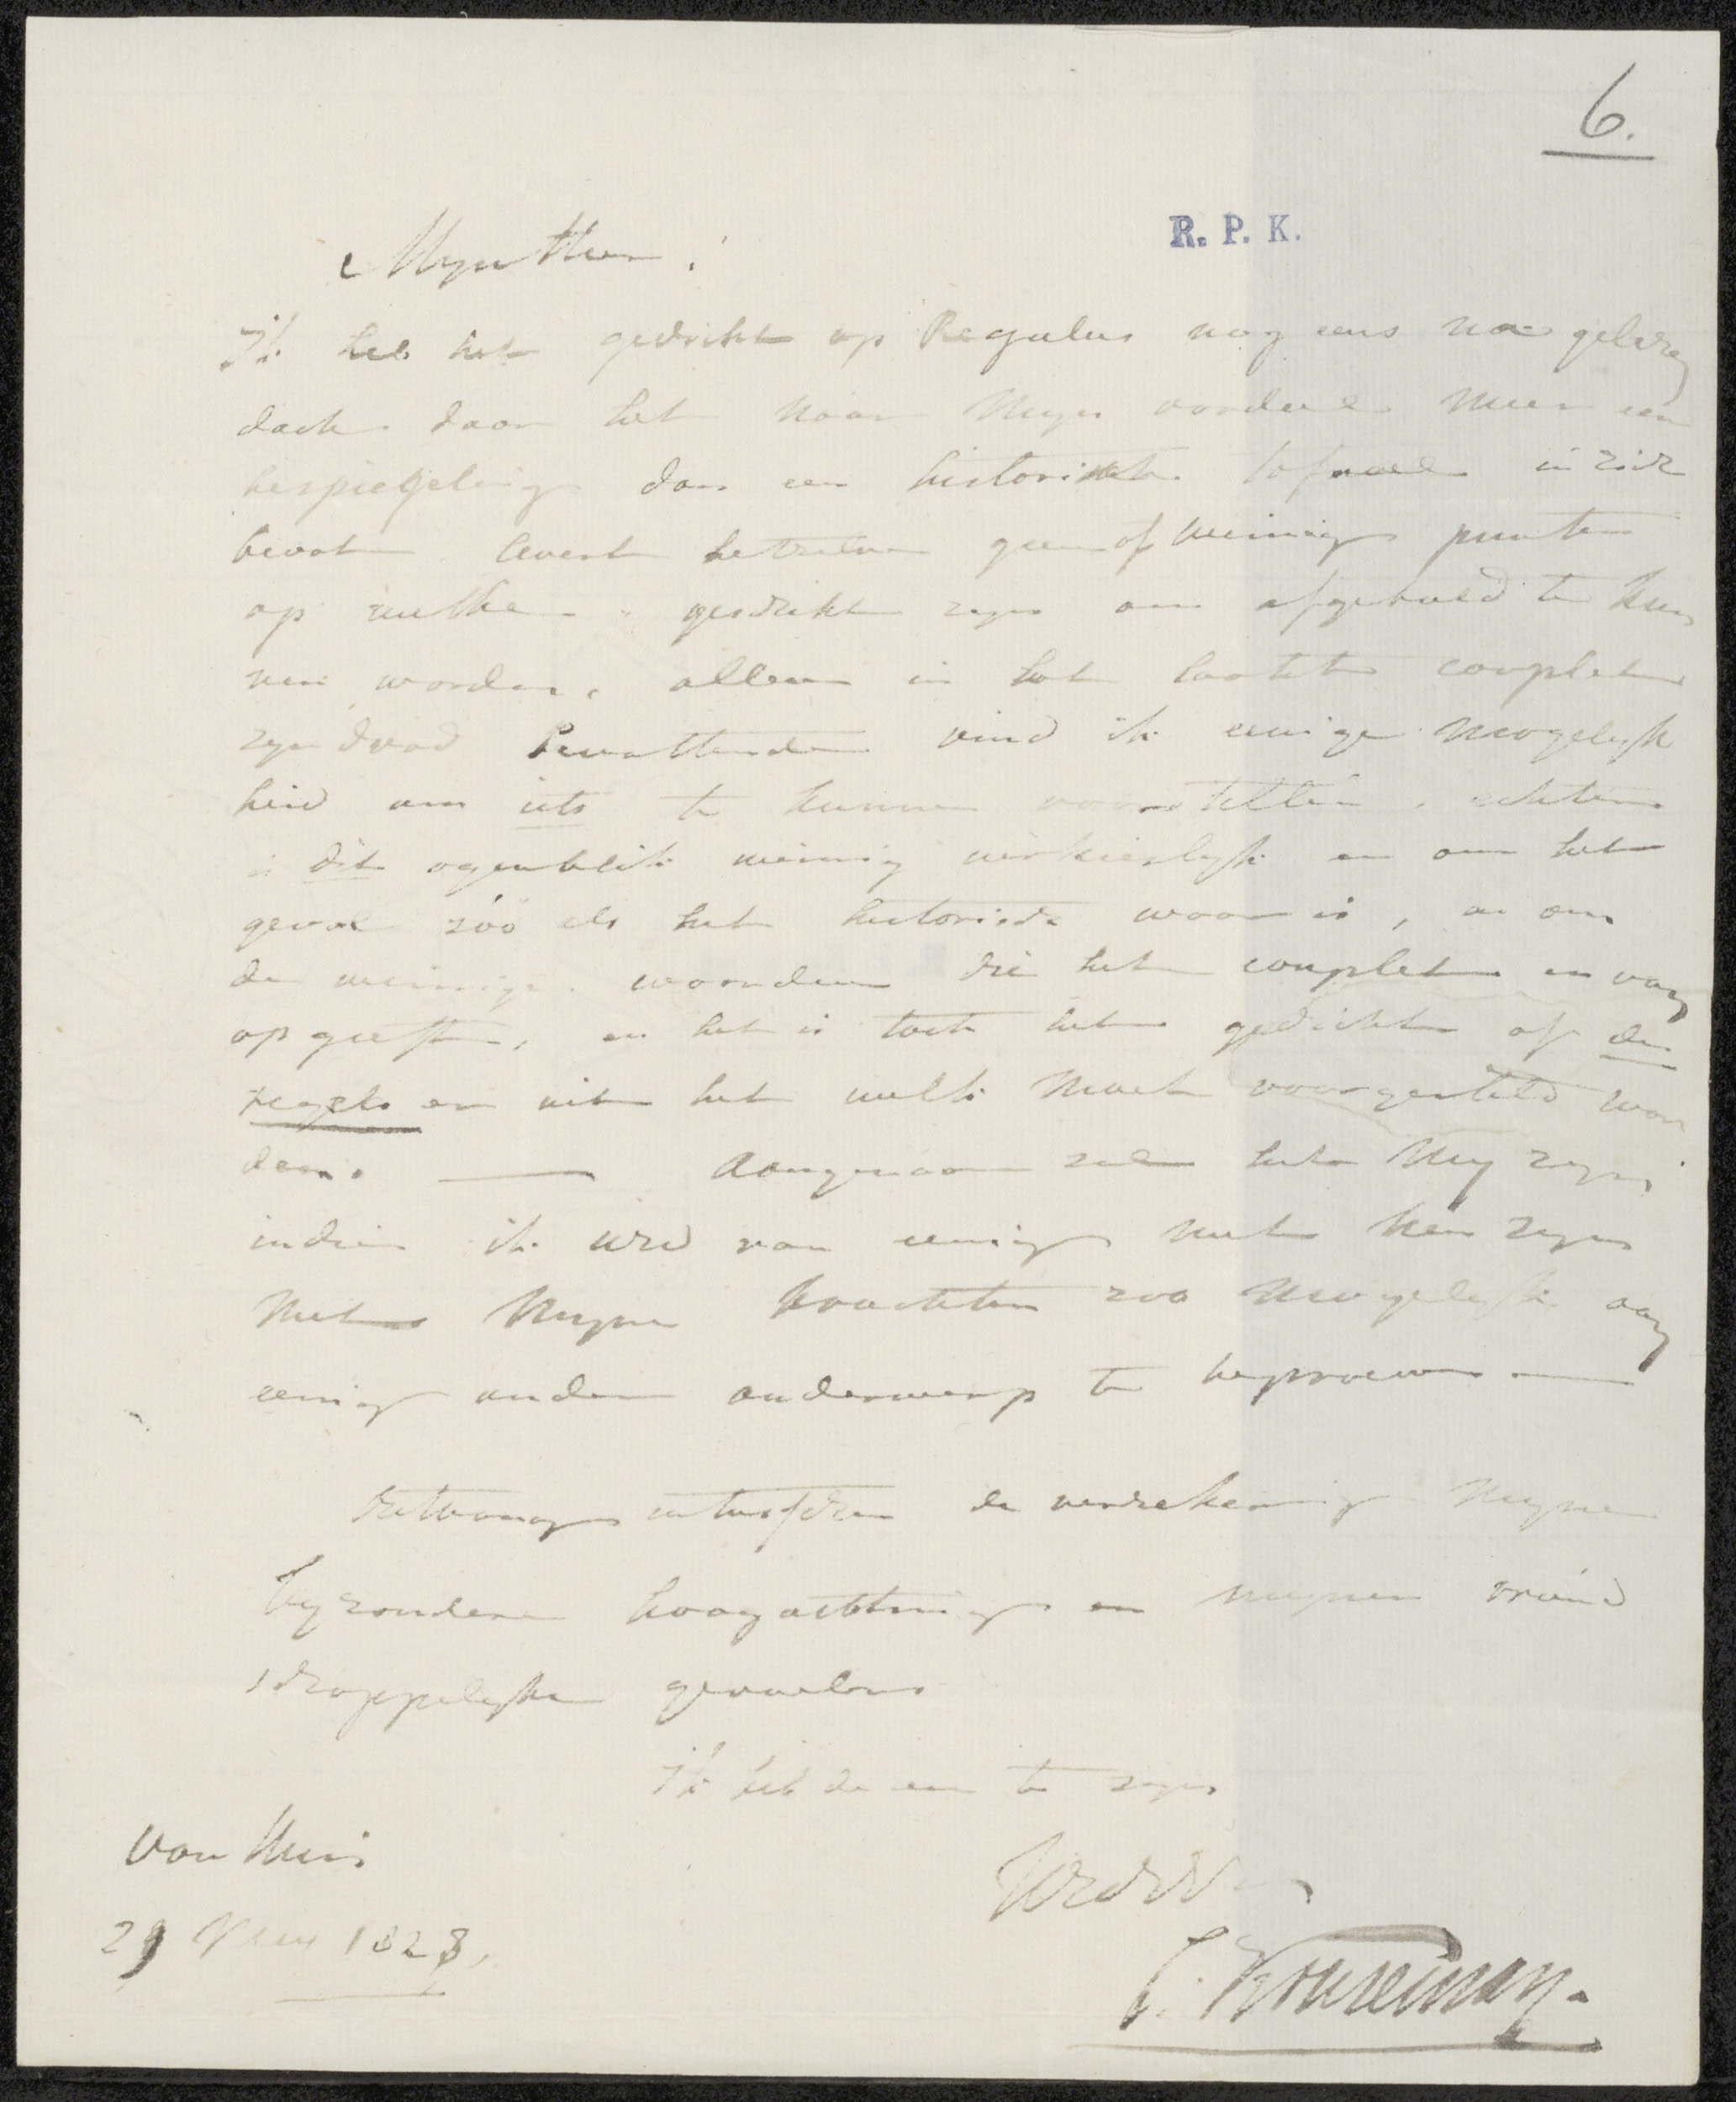 6.
R. P. K.
Mijn Heer!
Ik heb het gedicht op Regulus nog eens na gelezen
doch daar het naar Mijn oordeel Meer een
bespiegeling dan een historisch tafereel in zich
bevat levert hetzelve geen of weinig punten
op welke geschikt zijn om afgebeeld te kun
nen worden, alleen in het laatste couplet
zijn dood bevattende vind ik eenige mogelijk
heid om iets te kunnen voorstellen, echter
is dit ogenblik weinig verkieslijk en om het
geval zóó als het historisch waar is, en om
de weinige woorden die het couplet er van
op geeft, en het is toch het gedicht of de
regels er uit het welk Moet voorgesteld wor
den. — Aangenaam zal het Mij zijn
indien ik UEd van eenig nut kan zijn
Met Mijne krachten zoo Mogelijk aan
eenig ander onderwerp te beproeven —
Ontvang intusschen de verzekering Mijner
bijzondere hoogachting en mijner vriend
schappelijke gevoelens
Ik heb de eer te zijn
van Huis
UEd
29 1828.
C. Kruseman.